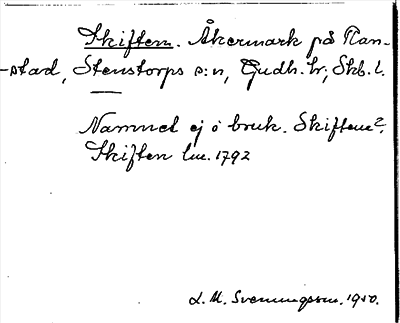 Skiften. Åkermark på Ran-
-stad, Stenstorps s:n, Gudh. hr; Skb. l.
Namnet ej i bruk. Skiftena?,
Skiften lm. 1792
L. M. Svenungsson. 1950.